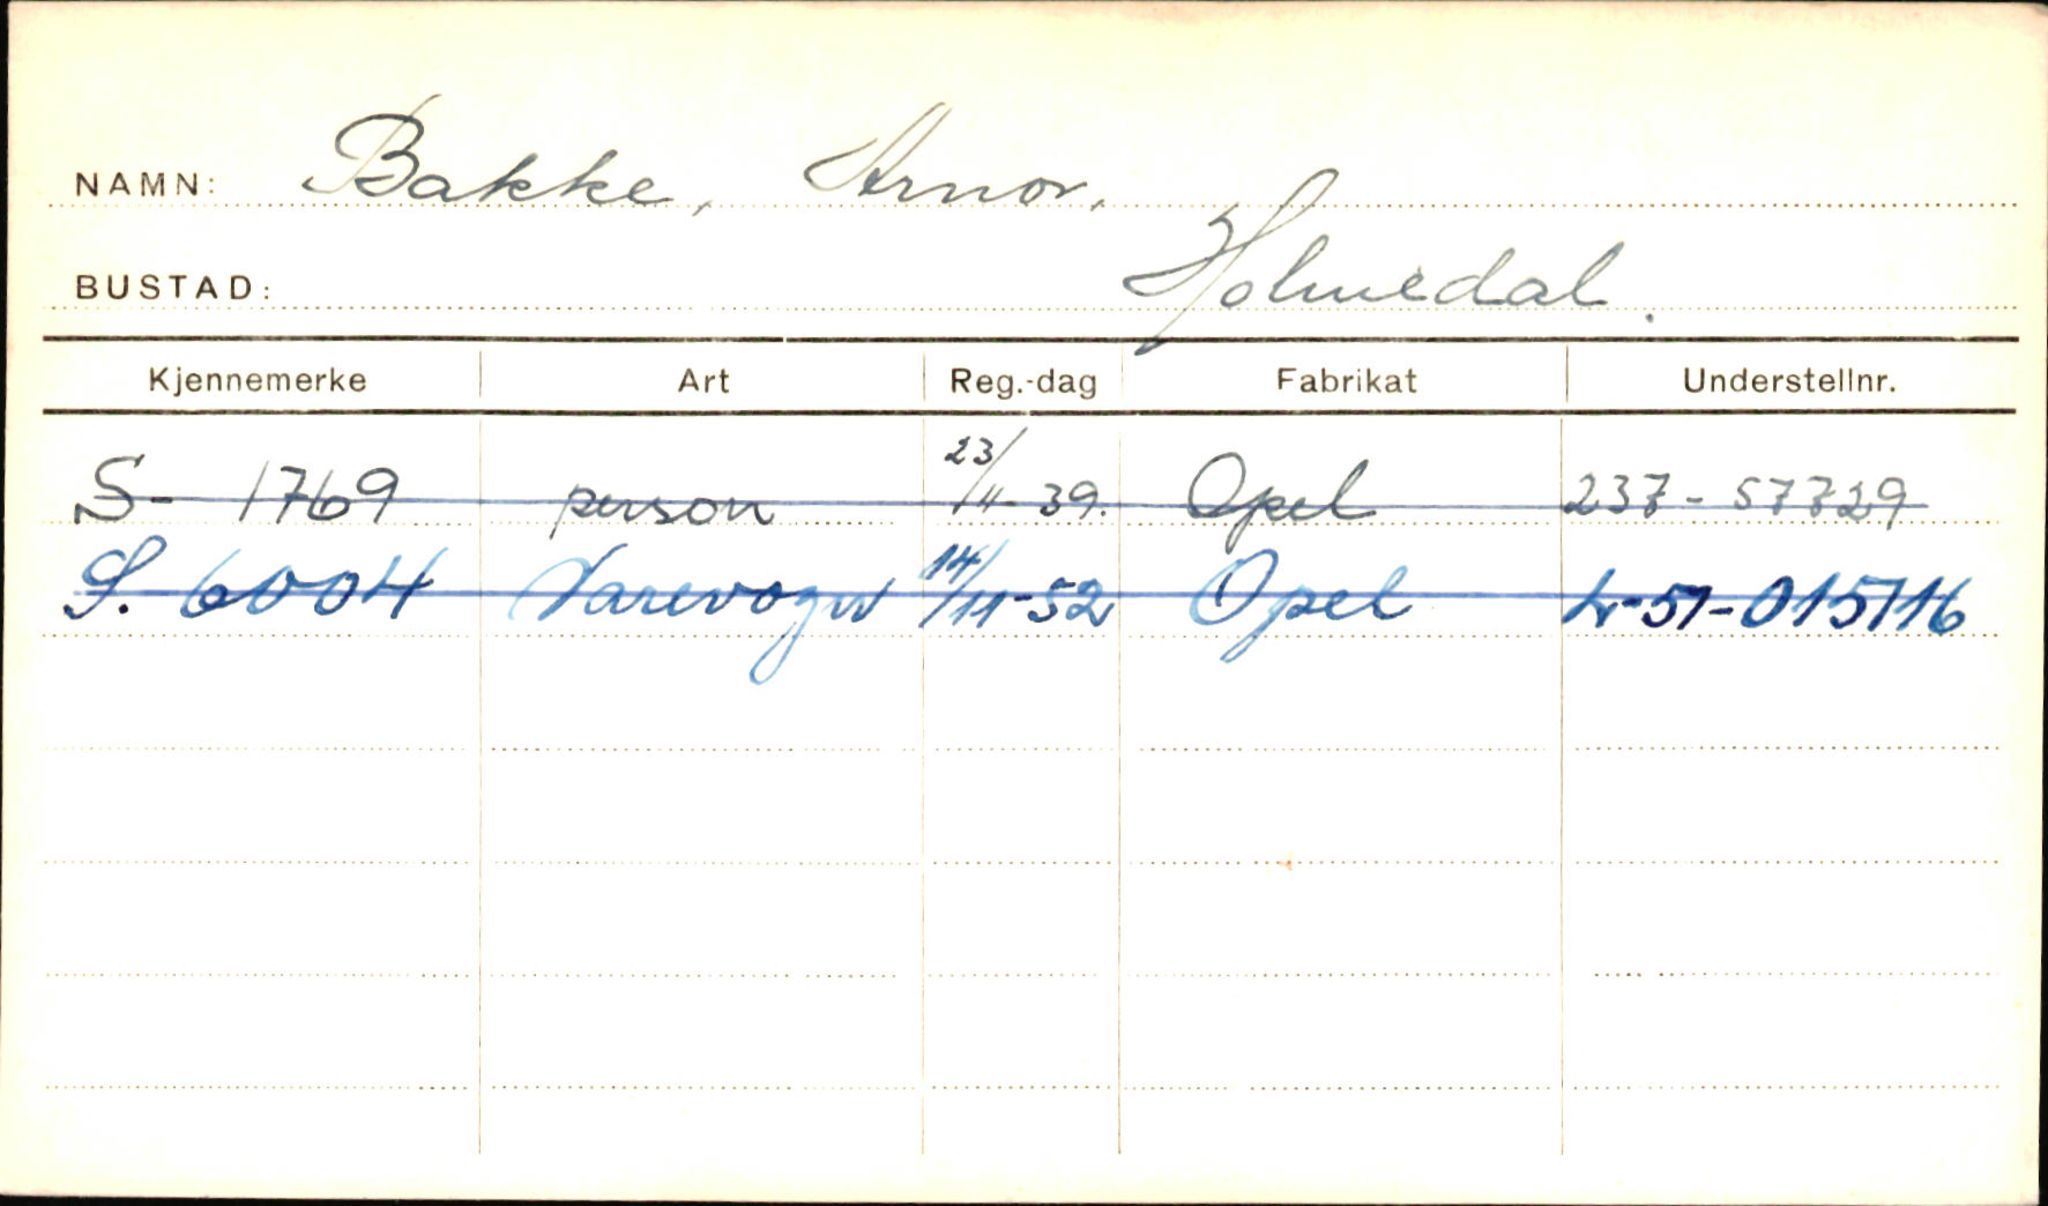 NAMN: Bakke, Arnor.
BUSTAD: Holmedal.
Kjennemerke Art Reg.-dag Fabrikat Understellnr.
S- 1769 person 23/11-39. Opel 237-57729
S. 6004 Varevogn 14/11-52 Opel L-51-015116